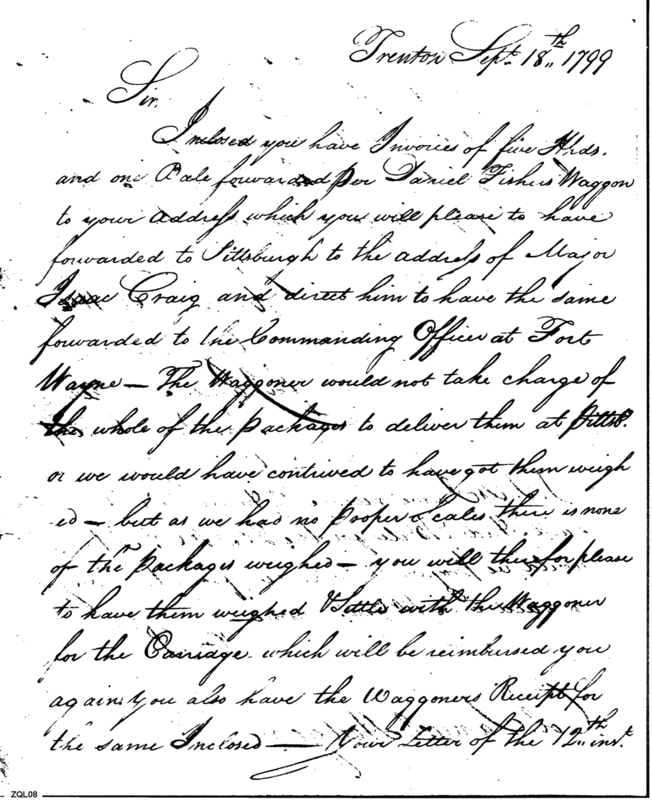 Trenton Sept. 18th 1799
Sir,
Inclosed you have Invoices of five Hhds.
and one Bale forwarded per Daniel Fishers Waggon
to your Address which you will please to have
forwarded to Pittsburgh to the address of Major
Isaac Craig and direct him to have the same
forwarded to the Commanding Officer at Fort
Wayne — The Waggoner would not take charge of
the whole of the packages to deliver them at Pittsb.
or we would have contrived to have got them weigh
ed — but as we had no pooper Scales there is none
of the packages weighed — you will therefor please
to have them weighed & Settle with the Waggoner
for the Carriage which will be reimbursed you
again. You also have the Waggoners Receipt for
the same Inclosed — Your Letter of the 12th inst.
ZQL08